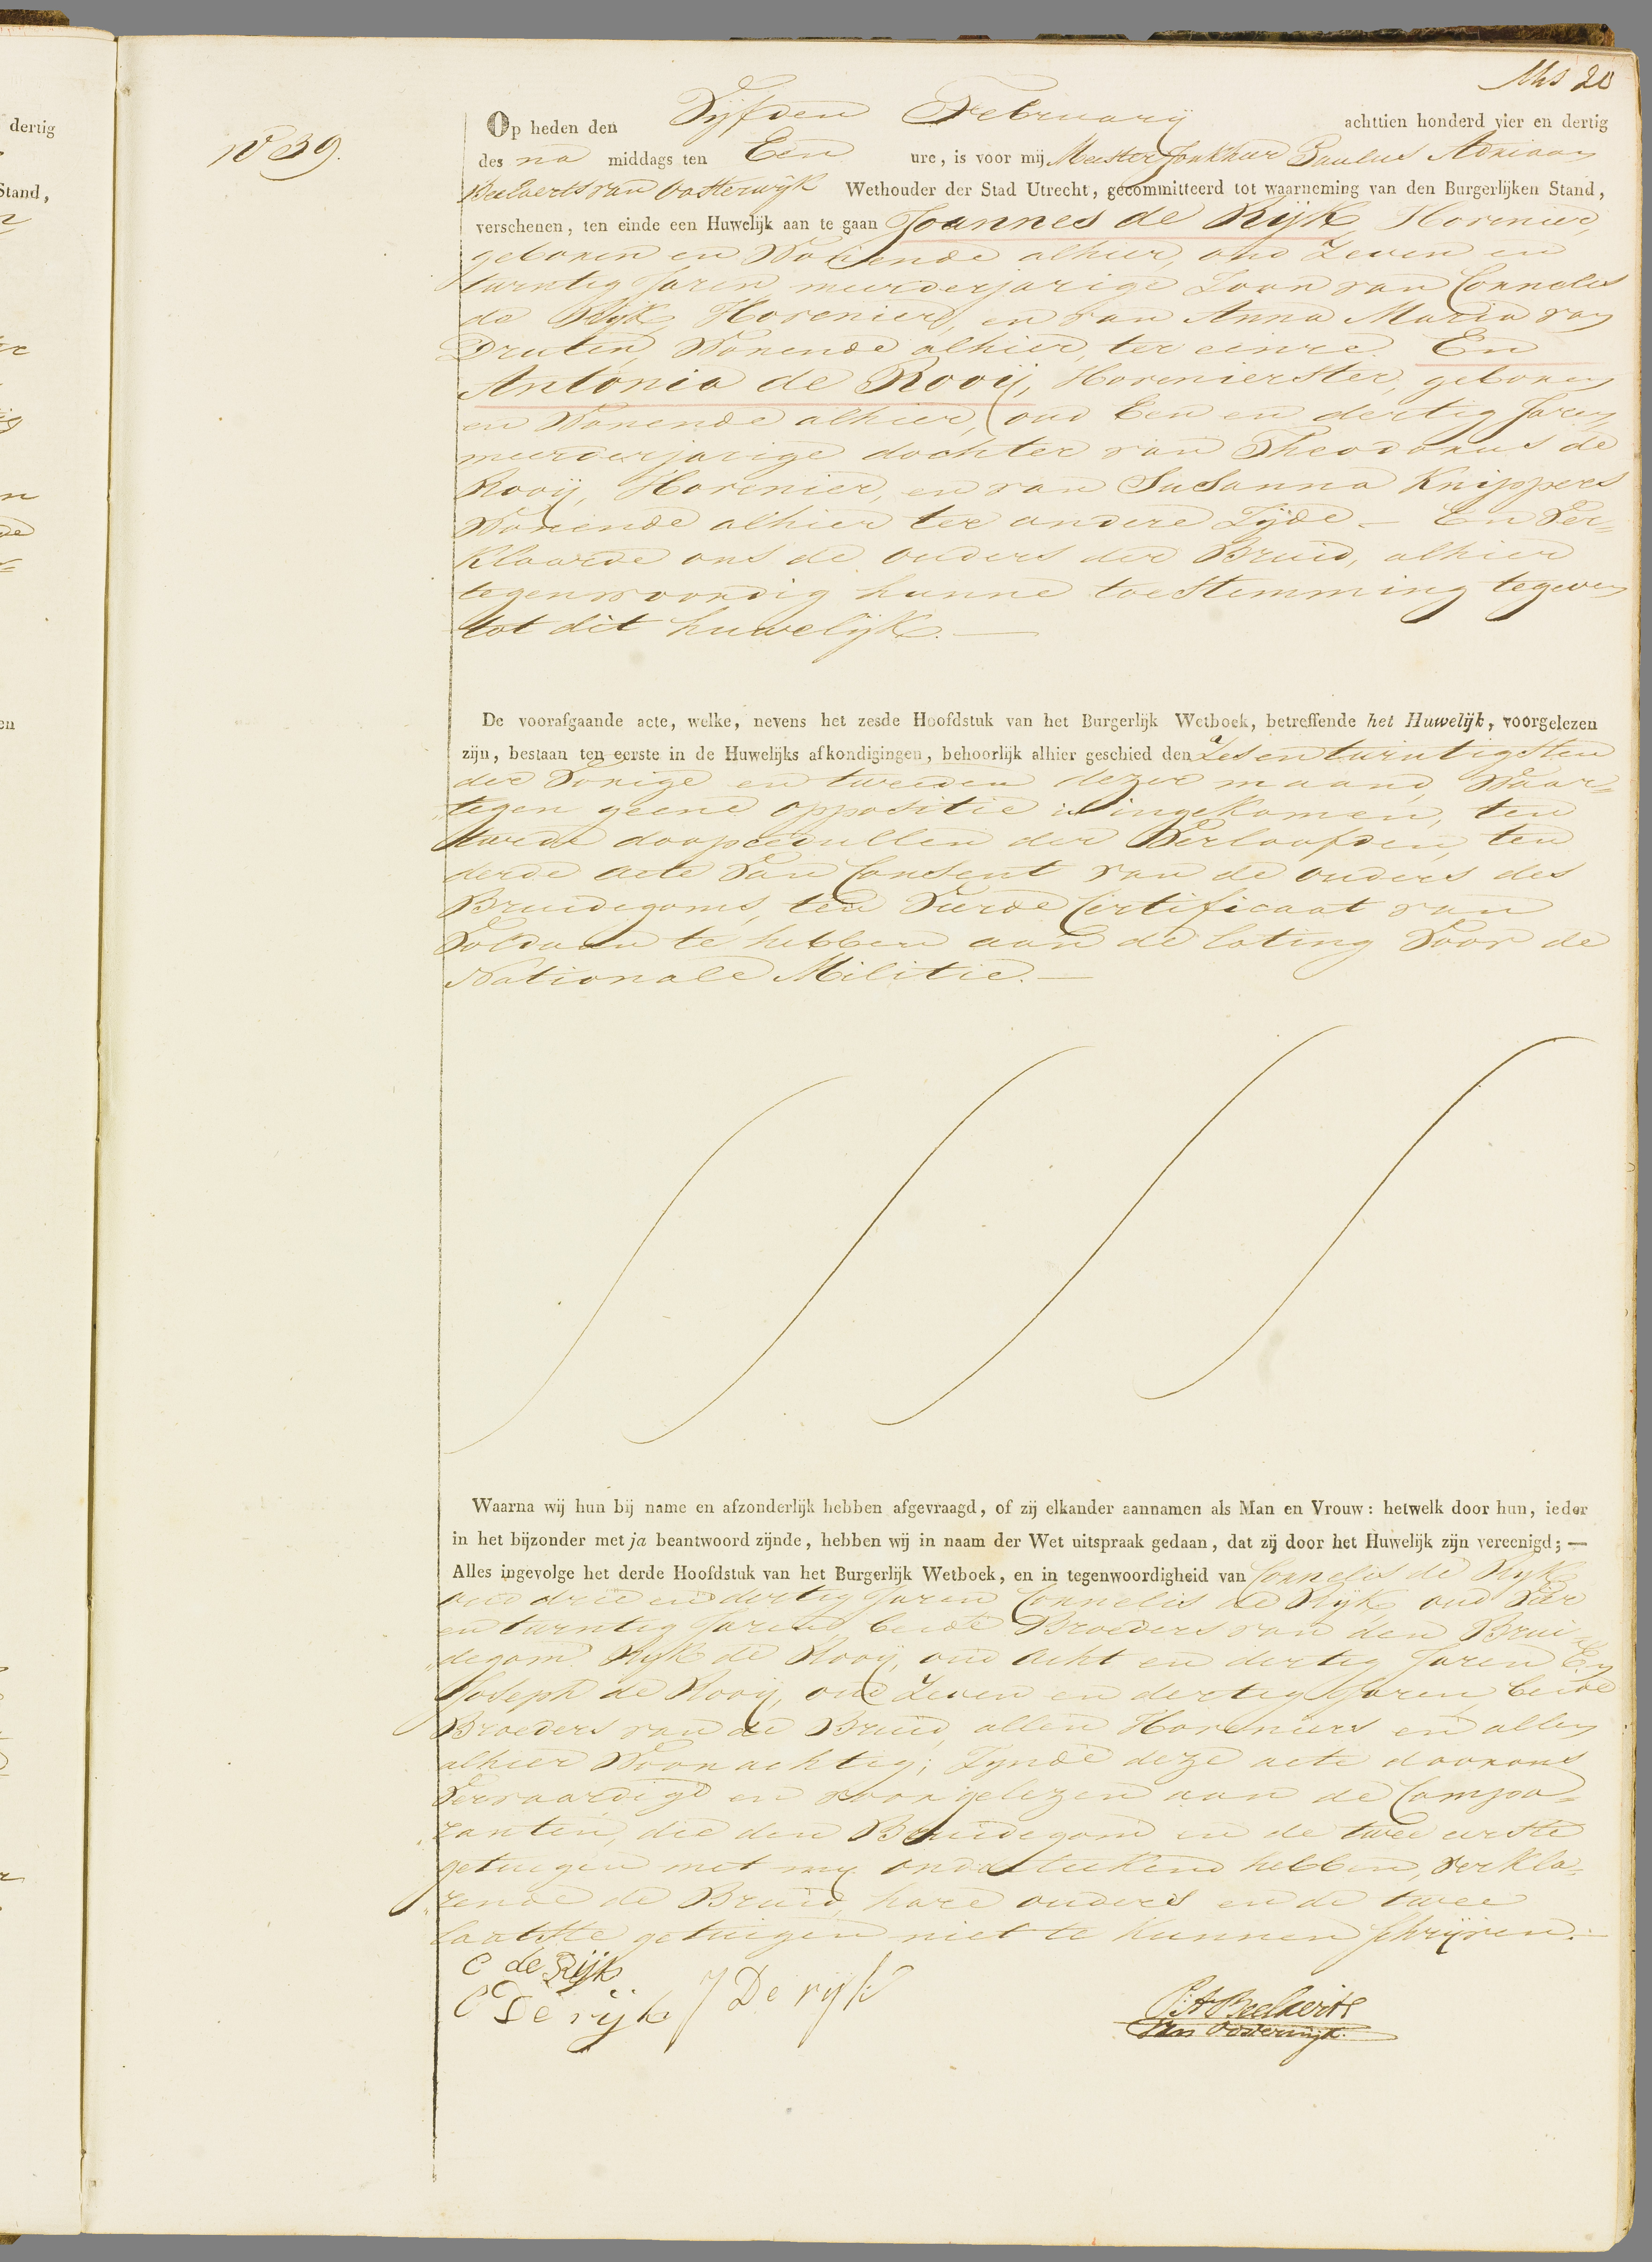 No 39.
Op heden den Vijfden February achttien honderd vier en dertig
des na middags ten Een ure, is voor mij Meester Jonkheer Paulus Adriaan
Beelaerts van Oosterwijk Wethouder der Stad Utrecht, gecommitteerd tot waarneming van den Burgerlijken Stand,
verschenen, ten einde een Huwelijk aan te gaan Joannes de Rijk, Hovenier,
geboren en Wonende alhier, oud Zeven en
twintig Jaren meerderjarige Zoon van Cornelis
de Rijk, Hovenier, en van Anna Maria van
Druten, Wonende alhier, ter eenre. En
Antonia de Rooij, Hovenierster, geboren
en Wonende alhier, oud Een en dertig Jaren,
meerderjarige dochter van Theodorus de
Rooij, Hovenier, en van Susanna Knippers
Wonende alhier ter andere Zijde – En Ver=
klaarde ons de ouders der Bruid, alhier
tegenwoordig hunne toestemming tegeven
tot dit huwelijk. —
De voorafgaande acte, welke, nevens het zesde Hoofdstuk van het Burgerlijk Wetboek, betreffende het Huwelijk, voorgelezen
zijn, bestaan ten eerste in de Huwelijks afkondigingen, behoorlijk alhier geschied den Zesentwintigsten
der Vorige en tweeden dezer maand, Waar=
tegen geene oppositie is ingekomen, ten
tweede doopcedullen der Verloofden, ten
derde acte Van Consent van de ouders des
Bruidegoms, ten Vierde Certificaat van
Voldaan te hebben aan de loting Voor de
Nationale Militie. —
Waarna wij hun bij name en afzonderlijk hebben afgevraagd, of zij elkander aannamen als Man en Vrouw: hetwelk door hun, ieder
in het bijzonder met ja beantwoord zijnde, hebben wij in naam der Wet uitspraak gedaan, dat zij door het Huwelijk zijn vereenigd; —
Alles ingevolge het derde Hoofdstuk van het Burgerlijk Wetboek, en in tegenwoordigheid van Cornelis de Rijk
oud drie en dertig Jaren Cornelis de Rijk oud Vier
en twintig Jaren, beide Broeders van den Brui=
degom Rijk de Rooij, oud Acht en dertig Jaren En
Joseph de Rooij, oud Zeven en dertig Jaren beide
Broeders van de Bruid, allen Hoveniers en allen
alhier Woonachtig; Zynde deze acte door ons
Vervaardigd en voorgelezen aan de Compa=
ranten, die den Bruidegom en de twee eerste
getuigen met my onderteekend hebben, verkla=
rende de Bruid, hare ouders en de twee
laatste getuigen niet te kunnen schrijven. —
C de Rijk
C De rijk J De rijk
P. A. Beelaerts
van Oosterwijk
dertig
Stand,